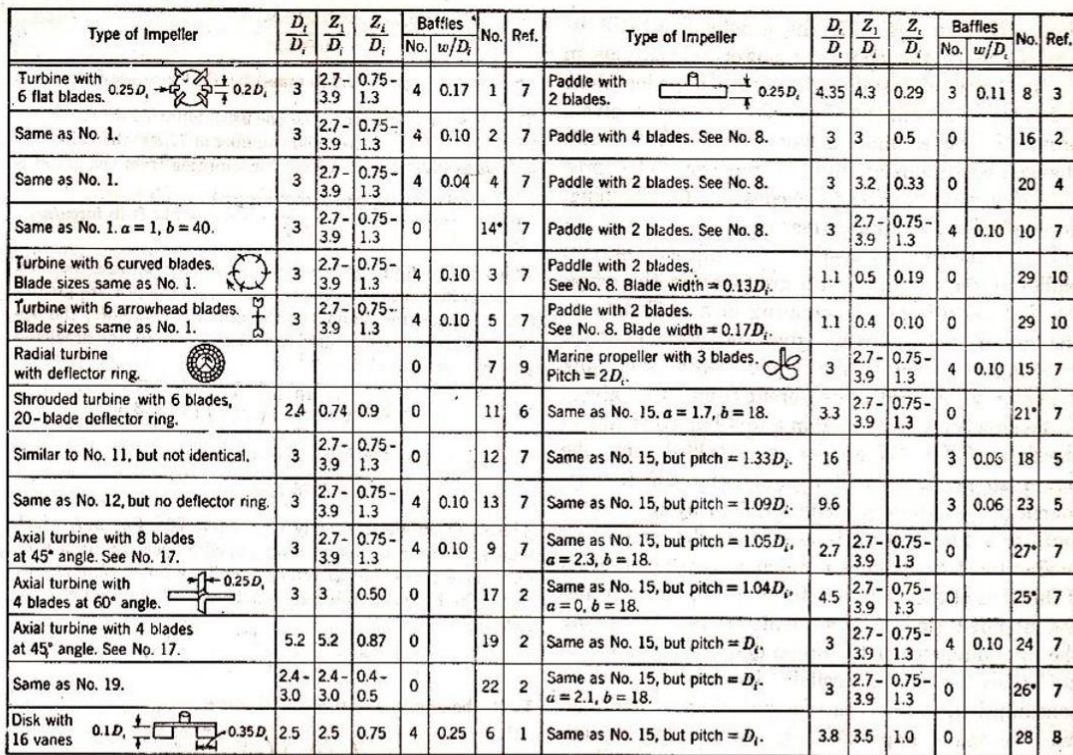 Type of Impeller Dt/Di Z1/Di Zi/Di Baffles No. w/Di No. Ref.
Turbine with 6 flat blades. 0.25Di 0.2Di 3 2.7-3.9 0.75-1.3 4 0.17 1 7
Same as No. 1. 3 2.7-3.9 0.75-1.3 4 0.10 2 7
Same as No. 1. 3 2.7-3.9 0.75-1.3 4 0.04 4 7
Same as No. 1. a = 1, b = 40. 3 2.7-3.9 0.75-1.3 0 14* 7
Turbine with 6 curved blades. Blade sizes same as No. 1. 3 2.7-3.9 0.75-1.3 4 0.10 3 7
Turbine with 6 arrowhead blades. Blade sizes same as No. 1. 3 2.7-3.9 0.75-1.3 4 0.10 5 7
Radial turbine with deflector ring. 0 7 9
Shrouded turbine with 6 blades, 20-blade deflector ring. 2.4 0.74 0.9 0 11 6
Similar to No. 11, but not identical. 3 2.7-3.9 0.75-1.3 0 12 7
Same as No. 12, but no deflector ring. 3 2.7-3.9 0.75-1.3 4 0.10 13 7
Axial turbine with 8 blades at 45° angle. See No. 17. 3 2.7-3.9 0.75-1.3 4 0.10 9 7
Axial turbine with 4 blades at 60° angle. 0.25Di 3 3 0.50 0 17 2
Axial turbine with 4 blades at 45° angle. See No. 17. 5.2 5.2 0.87 0 19 2
Same as No. 19. 2.4-3.0 2.4-3.0 0.4-0.5 0 22 2
Disk with 16 vanes 0.1Di 0.35Di 2.5 2.5 0.75 4 0.25 6 1
Type of Impeller Dt/Di Z1/Di Zi/Di Baffles No. w/Di No. Ref.
Paddle with 2 blades. 0.25Di 4.35 4.3 0.29 3 0.11 8 3
Paddle with 4 blades. See No. 8. 3 3 0.5 0 16 2
Paddle with 2 blades. See No. 8. 3 3.2 0.33 0 20 4
Paddle with 2 blades. See No. 8. 3 2.7-3.9 0.75-1.3 4 0.10 10 7
Paddle with 2 blades. See No. 8. Blade width = 0.13Di. 1.1 0.5 0.19 0 29 10
Paddle with 2 blades. See No. 8. Blade width = 0.17Di. 1.1 0.4 0.10 0 29 10
Marine propeller with 3 blades. Pitch = 2Di. 3 2.7-3.9 0.75-1.3 4 0.10 15 7
Same as No. 15. a = 1.7, b = 18. 3.3 2.7-3.9 0.75-1.3 0 21* 7
Same as No. 15, but pitch = 1.33Di. 16 3 0.06 18 5
Same as No. 15, but pitch = 1.09Di. 9.6 3 0.06 23 5
Same as No. 15, but pitch = 1.05Di, a = 2.3, b = 18. 2.7 2.7-3.9 0.75-1.3 0 27* 7
Same as No. 15, but pitch = 1.04Di, a = 0, b = 18. 4.5 2.7-3.9 0.75-1.3 0 25* 7
Same as No. 15, but pitch = Di. 3 2.7-3.9 0.75-1.3 4 0.10 24 7
Same as No. 15, but pitch = Di. a = 2.1, b = 18. 3 2.7-3.9 0.75-1.3 0 26* 7
Same as No. 15, but pitch = Di. 3.8 3.5 1.0 0 28 8